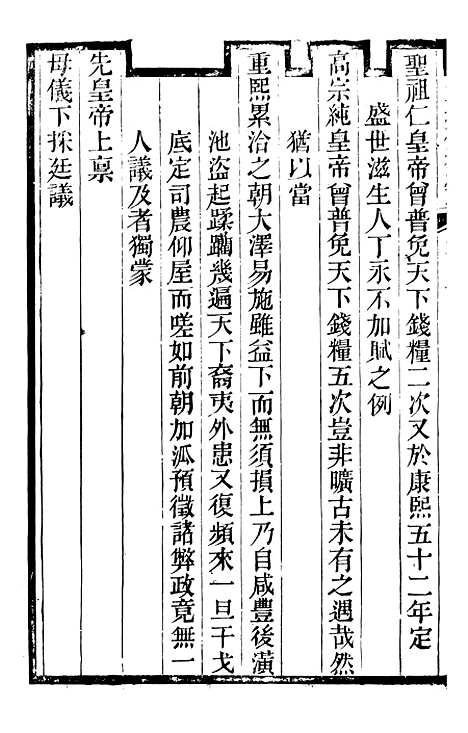 聖祖仁皇帝曾普免天下錢糧二次又於康熙五十二年定
盛世滋生人丁永不加賦之例
高宗純皇帝曾普免天下錢糧五次豈非曠古未有之遇哉然
猶以當
重熙累洽之朝大澤易施雖益下而無須損上乃自咸豐後潢
池盜起蹂躪幾遍天下裔夷外患又復頻來一旦干戈
底定司農仰屋而嗟如前朝加派預徵諸弊政竟無一
人議及者獨蒙
先皇帝上稟
母儀下採廷議